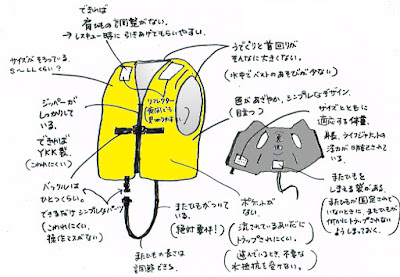 できれば
肩ひもの調整がない。
→レスキュー時に引きあげてもらいやすい。
サイズがそろっている。
S〜LLくらい?
ジッパーが
しっかりして
いる。
できれば
YKK製。
(こわれにくい)
バックルは
ひとつくらい。
できるだけシンプルなパーツ
(こわれにくい、
操作ミスがない)
リフレクター
(夜などでも
見つけやすい)
うでぐりと首回りが
そんなに大きくない。
(水中でベストのあそびが少ない)
色があざやか、シンプルなデザイン。
(目立つ)
サイズとともに
適応する体重、
身長、ライフジャケットの
浮力が明記されて
いる。
またひもを
しまえる袋がある。
(またひもが固定されて
いないときに、またひもが
何かにトラップされない
ようしまっておく。
またひもがついて
いる。
(絶対要件!)
またひもの長さは
調節できる。
ポケットが
ない。
(流されているあいだに
トラップされにくい。
泳いでいるとき、不要な
水抵抗を受けない。)